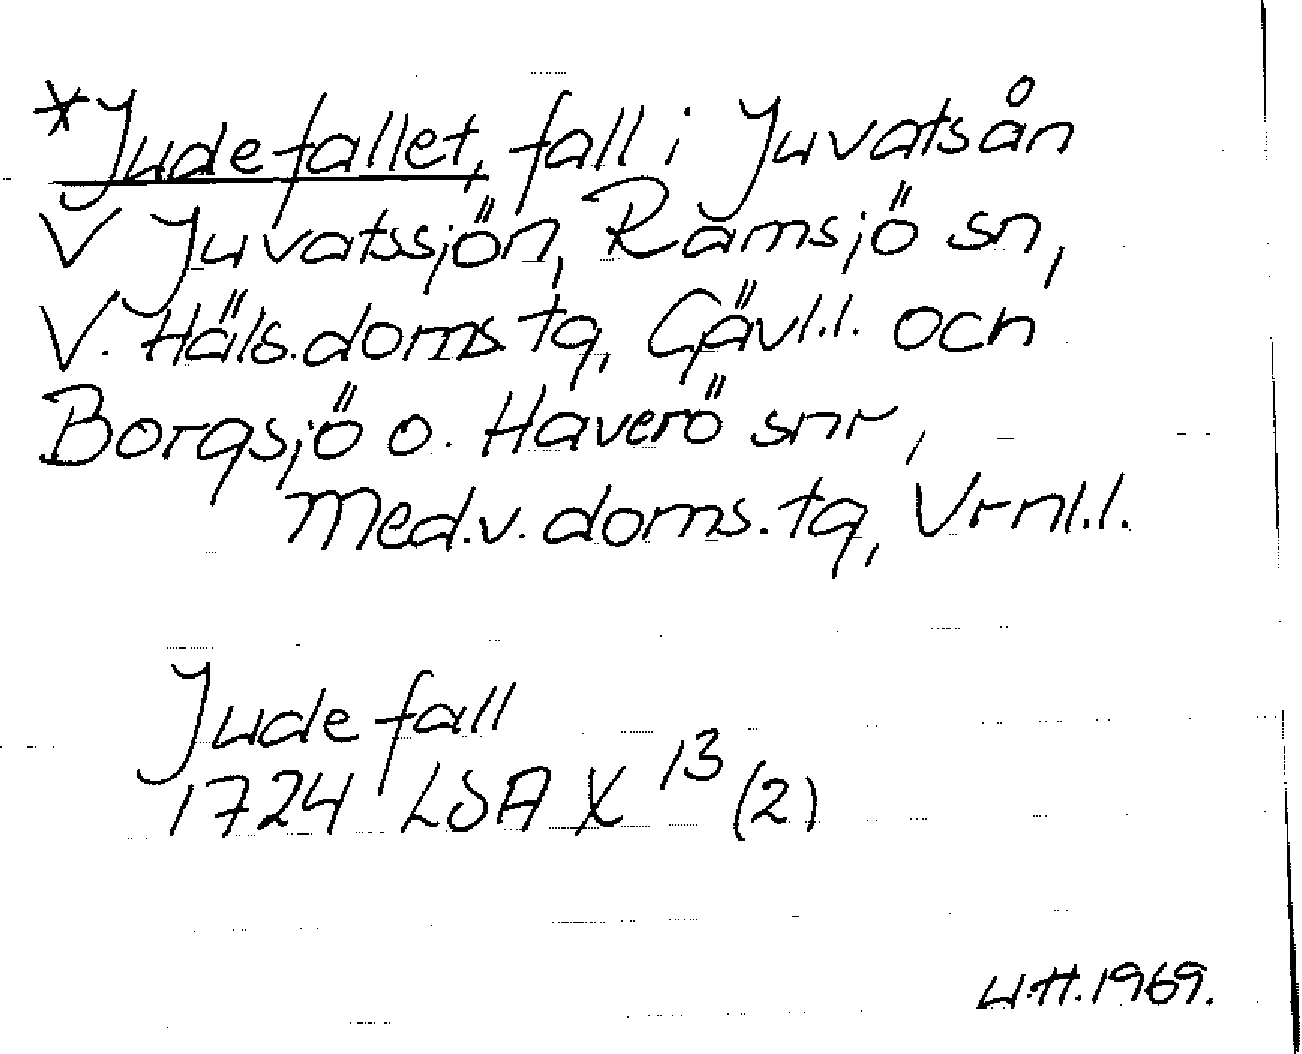 *Judefallet, fall i Juvatsån
V Juvatssjön, Ramsjö sn,
V. Häls. doms tg, Gävl.l. och
Borgsjö o. Haverö snr,
Med.v. doms. tg, Vrnl.l.
Jude fall
1724 LSA X 13 (2)
U.H. 1969.